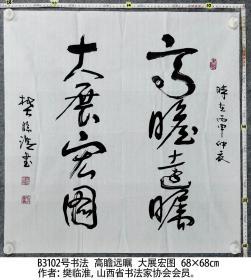 高瞻远瞩
大展宏图
時在丙申仲夏
樊临淮書
B3102号书法 高瞻远瞩 大展宏图 68×68cm
作者: 樊临淮, 山西省书法家协会会员。